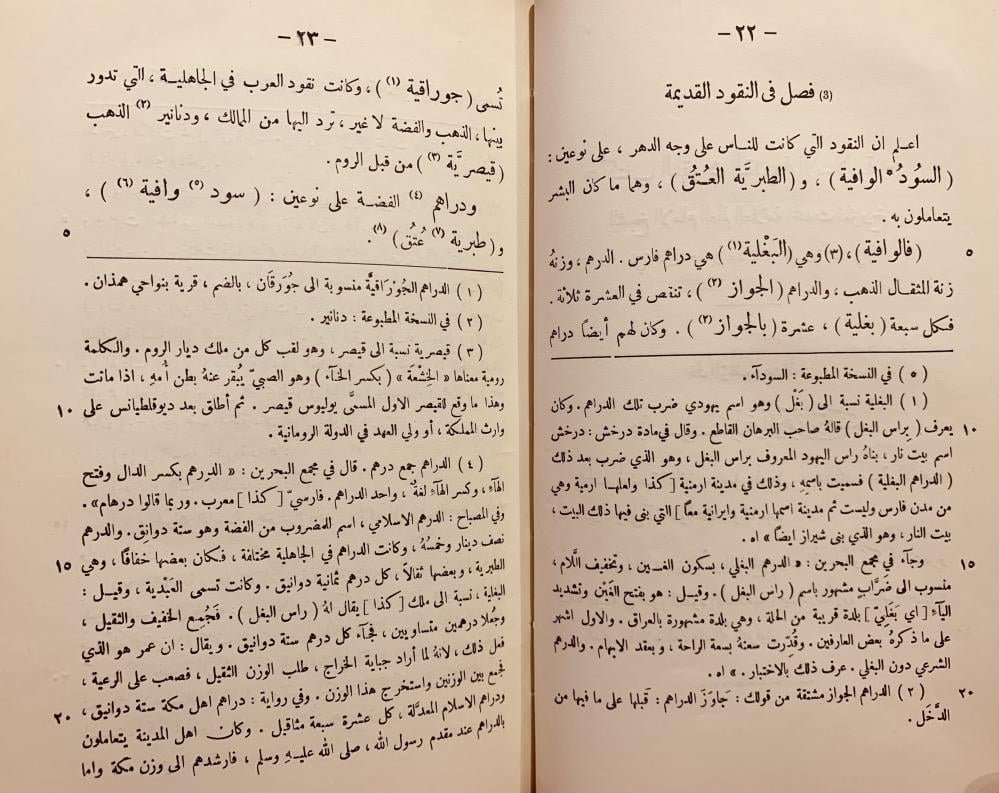 — ٢٢ —
(3) فصل فى النقود القديمة
اعلم ان النقود التي كانت للناس على وجه الدهر ، على نوعين :
( السُودُ * الوافية ) ، و ( الطبريَّة العُتُقُ ) ، وهما ما كان البشر
يتعاملون به .
٥ ( فالوافية ) ، (٣) وهي ( البَغْلية (١) ) هي دراهم فارس . الدرهم ، وزنهُ
زنة المثقال الذهب ، والدراهم ( الجواز (٢) ) ، تنقص في العشرة ثلاثة .
فكل سبعة ( بغلية ) ، عشرة ( بالجواز (٢) ) . وكان لهم أيضاً دراهم
( ٥ ) في النسخة المطبوعة : السوداَء .
( ١ ) البغلية نسبة الى ( بَغْل ) وهو اسم يهودي ضرب تلك الدراهم . وكان
١٠ يعرف ( براس البغل ) قالهُ صاحب البرهان القاطع . وقال في مادة درخش : درخش
اسم بيت نار ، بناهُ راس اليهود المعروف براس البغل ، وهو الذي ضرب بعد ذلك
( الدراهم البغلية ) فسميت باسمهِ ، وذلك في مدينة ارمنية [ كذا ولعلها ارمية وهي
من مدن فارس وليست ثم مدينة اسمها ارمنية وايرانية معاً ] التي بنى فيها ذلك البيت ،
بيت النار ، وهو الذي بنى شيراز ايضاً » اه .
١٥ وجاَء في مجمع البحرين : « الدرهم البغلي ، بسكون الغين ، وتخفيف اللَّام ،
منسوب الى ضَرَّاب مشهور باسم ( راس البغل ) . وقيل : هو بفتح الغَيْن وتشديد
الياَءِ [ اي بَغَلِيّ ] بلدة قريبة من الحلة ، وهي بلدة مشهورة بالعراق . والاول اشهر
على ما ذكرهُ بعض العارفين . وقُدِّرت سعتهُ بسعة الراحة ، وبعقد الابهام . والدرهم
الشرعي دون البغلي . عرف ذلك بالاختبار . » اه .
٢٠ ( ٢ ) الدراهم الجواز مشتقة من قولك : جاوَزَ الدراهم : قبلها على ما فيها من
الدَّخَل .
— ٢٣ —
تُسمى ( جوراقية (١) ) ، وكانت نقود العرب في الجاهلية ، التي تدور
بينها ، الذهب والفضة لا غير ، ترد اليها من المالك ، ودنانير (٢) الذهب
( قيصريَّة (٣) ) من قبل الروم .
ودراهم (٤) الفضة على نوعين : ( سود (٥) وافية (٦) ) ،
٥ و ( طبرية (٧) عُتُق ) (٨) .
( ١ ) الدراهم الجُوْرَاقيَّة منسوبة الى جُوْرَقَان ، بالضم ، قرية بنواحي همذان .
( ٢ ) في النسخة المطبوعة : دنانير .
( ٣ ) قيصرية نسبة الى قيصر ، وهو لقب كل من ملك ديار الروم . والكلمة
رومية معناها « الخِشْعَة » ( بكسر الخاَء ) وهو الصبيّ يُبقر عنهُ بطن أُمهِ ، اذا ماتت
١٠ وهذا ما وقع للقيصر الاول المسمَّى يوليوس قيصر . ثم أُطلق بعد ديوقلطيانس على
وارث المملكة ، أو ولي العهد في الدولة الرومانية .
( ٤ ) الدراهم جمع درهم . قال في مجمع البحرين : « الدِرهم بكسر الدال وفتح
الهاَءِ ، وكسر الهاَءِ لغةٌ ، واحد الدراهم . فارسيّ [ كذا ] معرب . وربما قالوا درهام » .
وفي المصباح : الدرهم الاسلامي ، اسم للمضروب من الفضة وهو ستة دوانق . والدرهم
نصف دينار وخمسُهُ ، وكانت الدراهم في الجاهلية مختلفة ، فكان بعضها خفافاً ، وهي
١٥ الطبرية ، وبعضها ثقالاً ، كل درهم ثمانية دوانيق . وكانت تسمى العَبْدية ، وقيل :
البغلية ، نسبة الى ملك [ كذا ] يقال لهُ ( راس البغل ) . فَجُمِع الخفيف والثقيل ،
وجُعلا درهمين متساويين ، فجاَء كل درهم ستة دوانيق . ويقال : ان عمر هو الذي
فعل ذلك ، لانهُ لما أراد جباية الخراج ، طلب الوزن الثقيل ، فصعب على الرعية ،
فجمع بين الوزنين واستخرج هذا الوزن . وفي رواية : دراهم اهل مكة ستة دوانيق ،
٢٠ ودراهم الاسلام المعدَّلة ، كل عشرة سبعة مثاقيل . وكان اهل المدينة يتعاملون
بالدراهم عند مقدم رسول الله ، صلى الله عليهِ وسلم ، فارشدهم الى وزن مكة واما